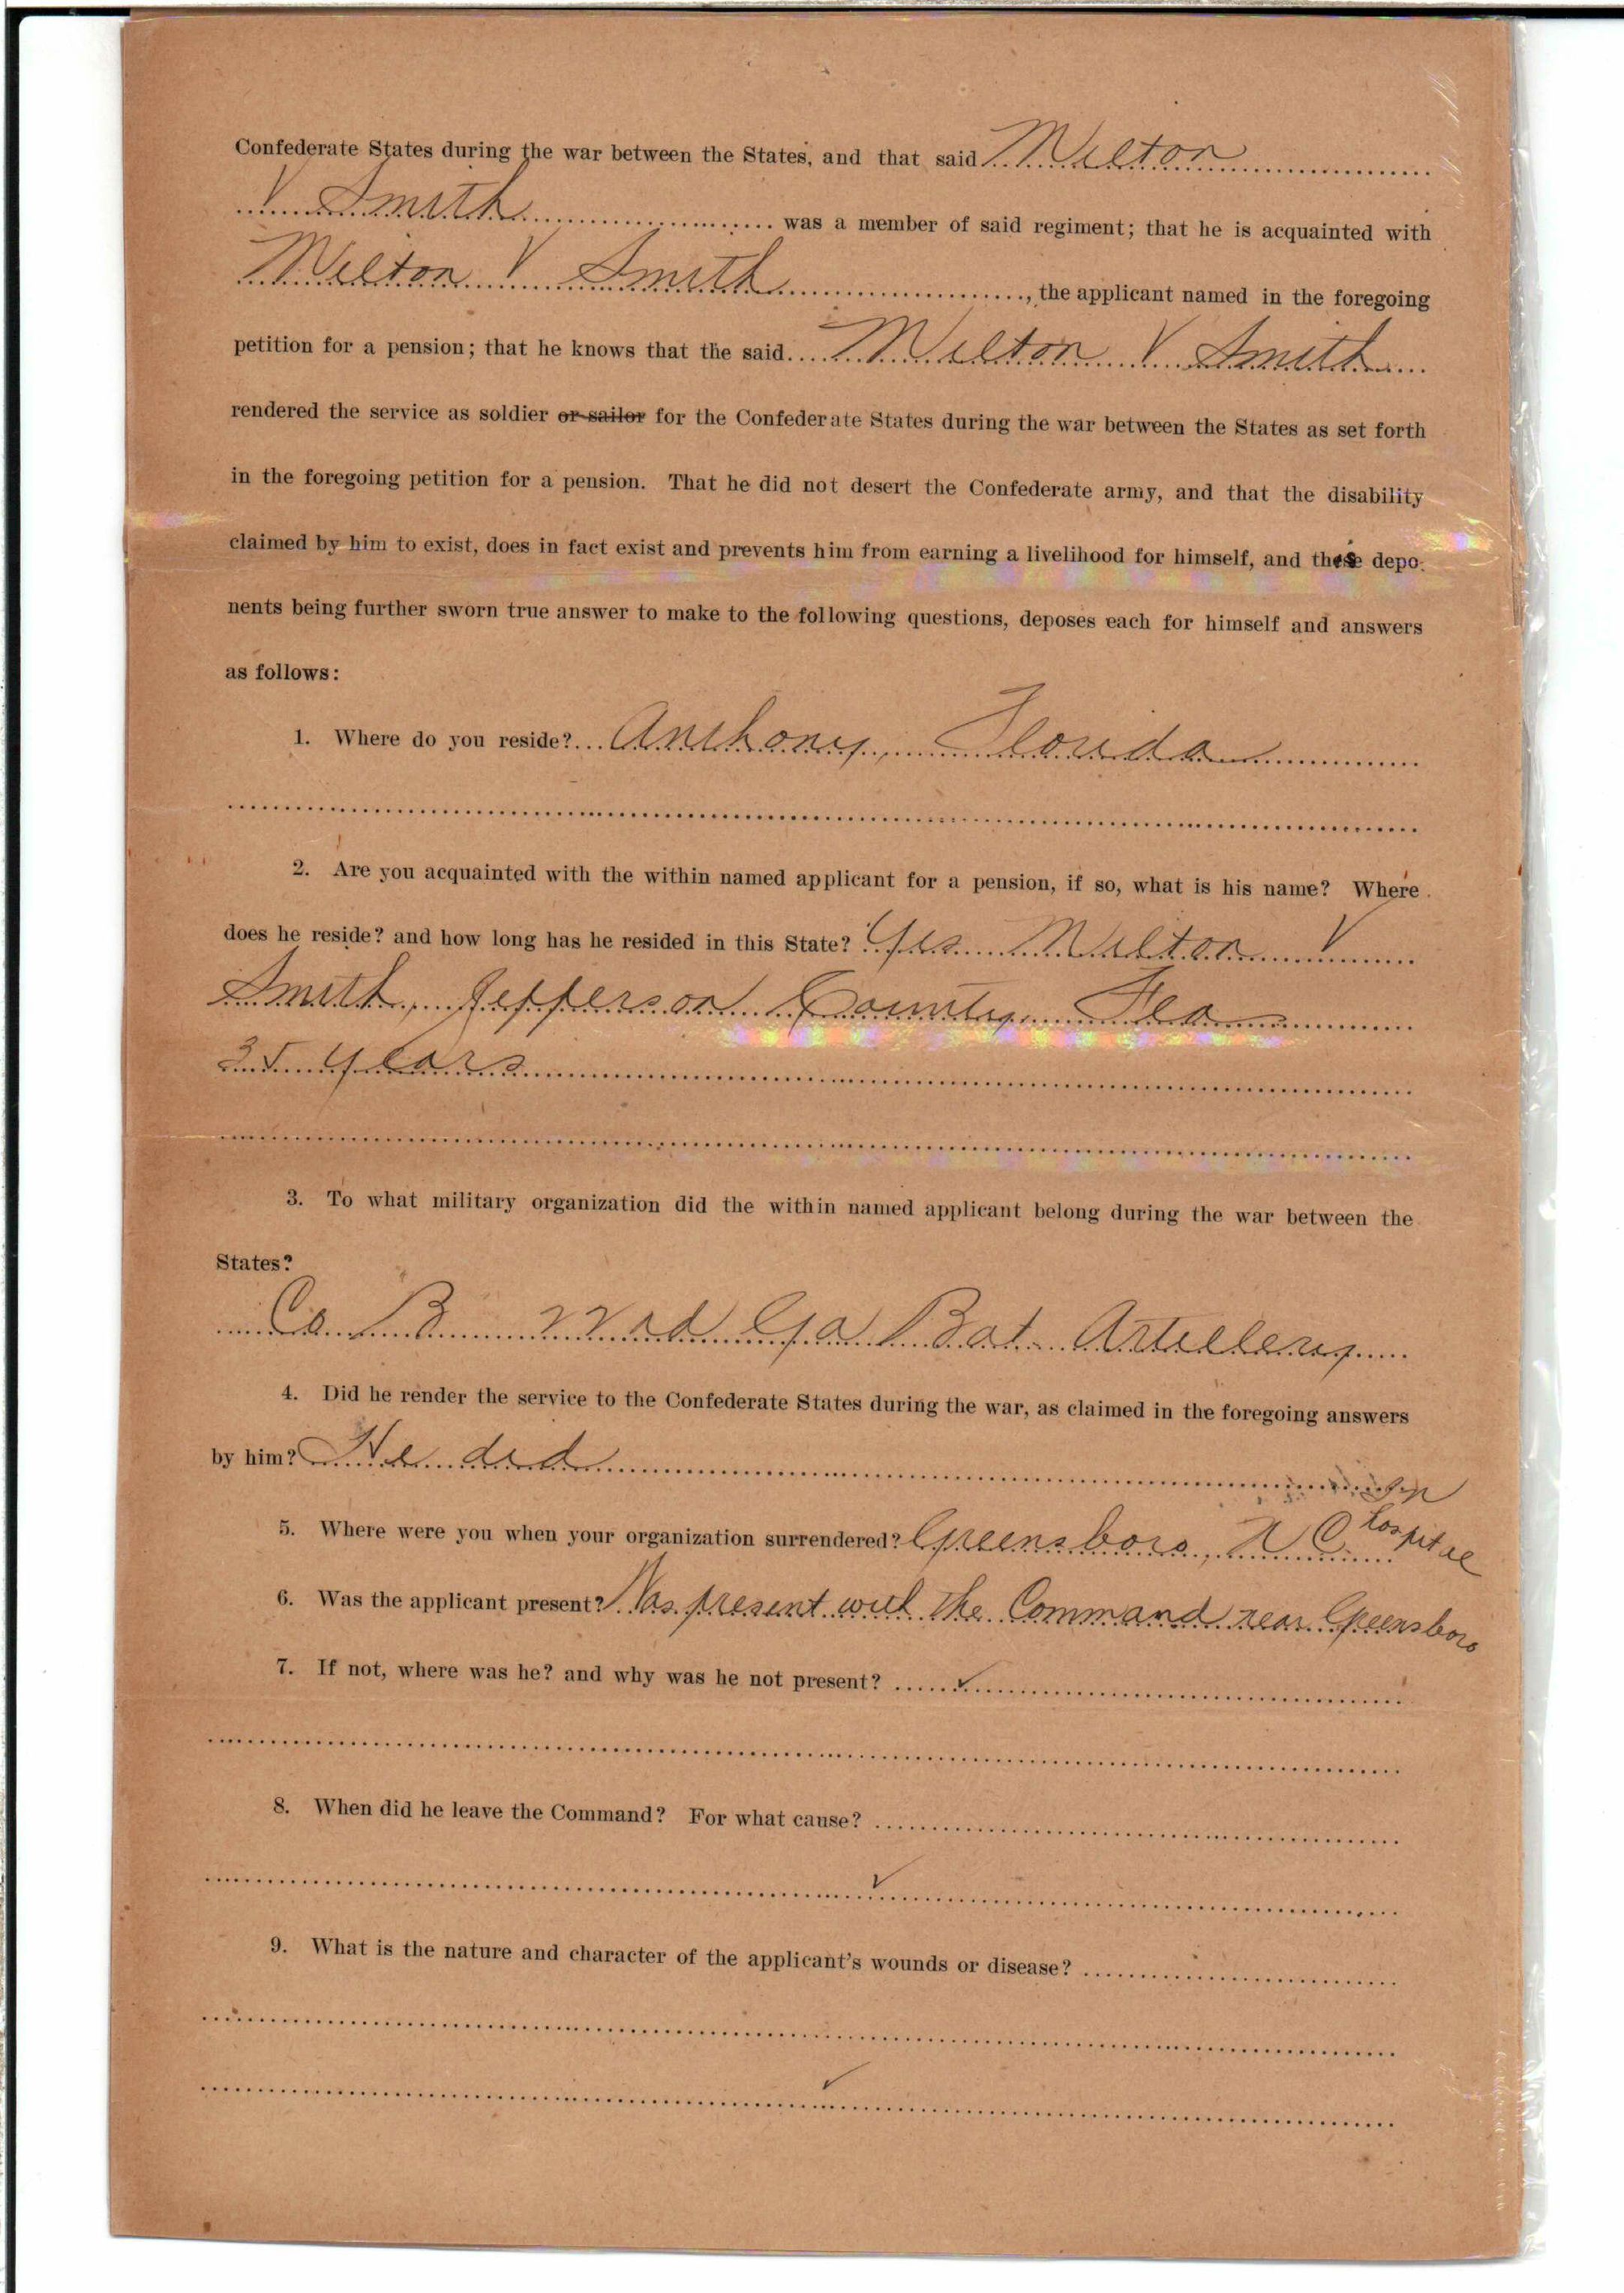 Confederate States during the war between the States, and that said Milton
V Smith was a member of said regiment; that he is acquainted with
Milton V Smith, the applicant named in the foregoing
petition for a pension; that he knows that the said Milton V Smith
rendered the service as soldier or sailor for the Confederate States during the war between the States as set forth
in the foregoing petition for a pension. That he did not desert the Confederate army, and that the disability
claimed by him to exist, does in fact exist and prevents him from earning a livelihood for himself, and these depo-
nents being further sworn true answer to make to the following questions, deposes each for himself and answers
as follows:
1. Where do you reside? Anthony, Florida
2. Are you acquainted with the within named applicant for a pension, if so, what is his name? Where
does he reside? and how long has he resided in this State? Yes Milton V
Smith, Jefferson County Fla
35 years
3. To what military organization did the within named applicant belong during the war between the
States?
Co B 22nd Ga Bat. Artillery
4. Did he render the service to the Confederate States during the war, as claimed in the foregoing answers
by him? He did
in
5. Where were you when your organization surrendered? Greensboro, N C hospital
6. Was the applicant present? Was present with the Command near Greensboro
7. If not, where was he? and why was he not present? ✓
8. When did he leave the Command? For what cause?
✓
9. What is the nature and character of the applicant's wounds or disease?
✓